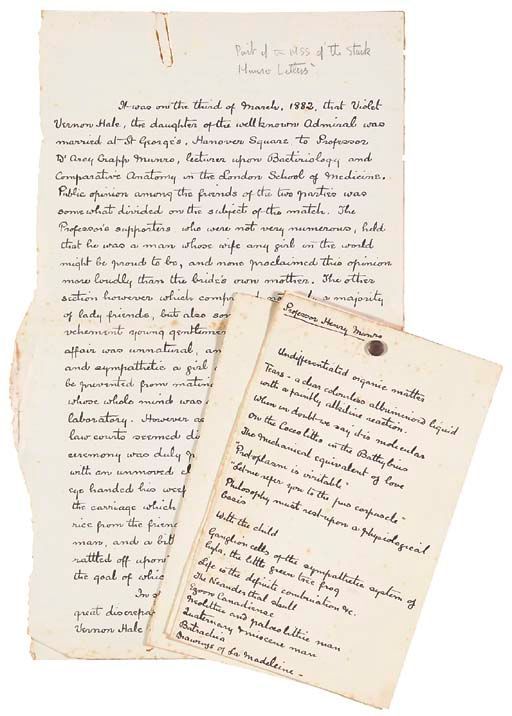 Part of a MSS of the Stark
Munro Letters"
It was on the third of March, 1882, that Violet
Vernon Hale, the daughter of the well known Admiral was
married at St George's, Hanover Square to Professor
D'Arcy Crapp Munro, lecturer upon Bacteriology and
Comparative Anatomy in the London School of Medicine.
Public opinion among the friends of the two parties was
somewhat divided on the subject of the match. The
Professor's supporters who were not very numerous, held
that he was a man whose wife any girl in the world
might be proud to be, and none proclaimed this opinion
more loudly than the bride's own mother. The other
section however which comp
majority
of lady friends, but also so
vehement young gentleme
affair was unnatural, an
and sympathetic a girl
be prevented from mati
whose whole mind was
laboratory. However as
law courts seemed di
ceremony was duly
with an unmoved
eye handed his weep
the carriage which
rice from the frien
man, and a bit
rattled off upon
the goal of whic
In s
great discrepa
Vernon Hale
Professor Henry Munro
Undifferentiated organic matter
Tears - a clear colourless albuminoid liquid
with a faintly alkaline reaction.
When in doubt we say it is molecular
On the Coccoliths in the Bathybius
The mechanical equivalent of love
"Protoplasm is irritable"
"Let me refer you to the pus corpuscle"
Philosophy must rest upon a physiological
basis
With the child
Ganglion cells of the sympathetic system of
hyla, the little green tree frog
Life is the definite combination &c.
The Neanderthal skull
Eozoon Canadiense
Neolithic and palaeolithic man
Quaternary & miocene man
Batrachia
Drawings of La Madeleine -